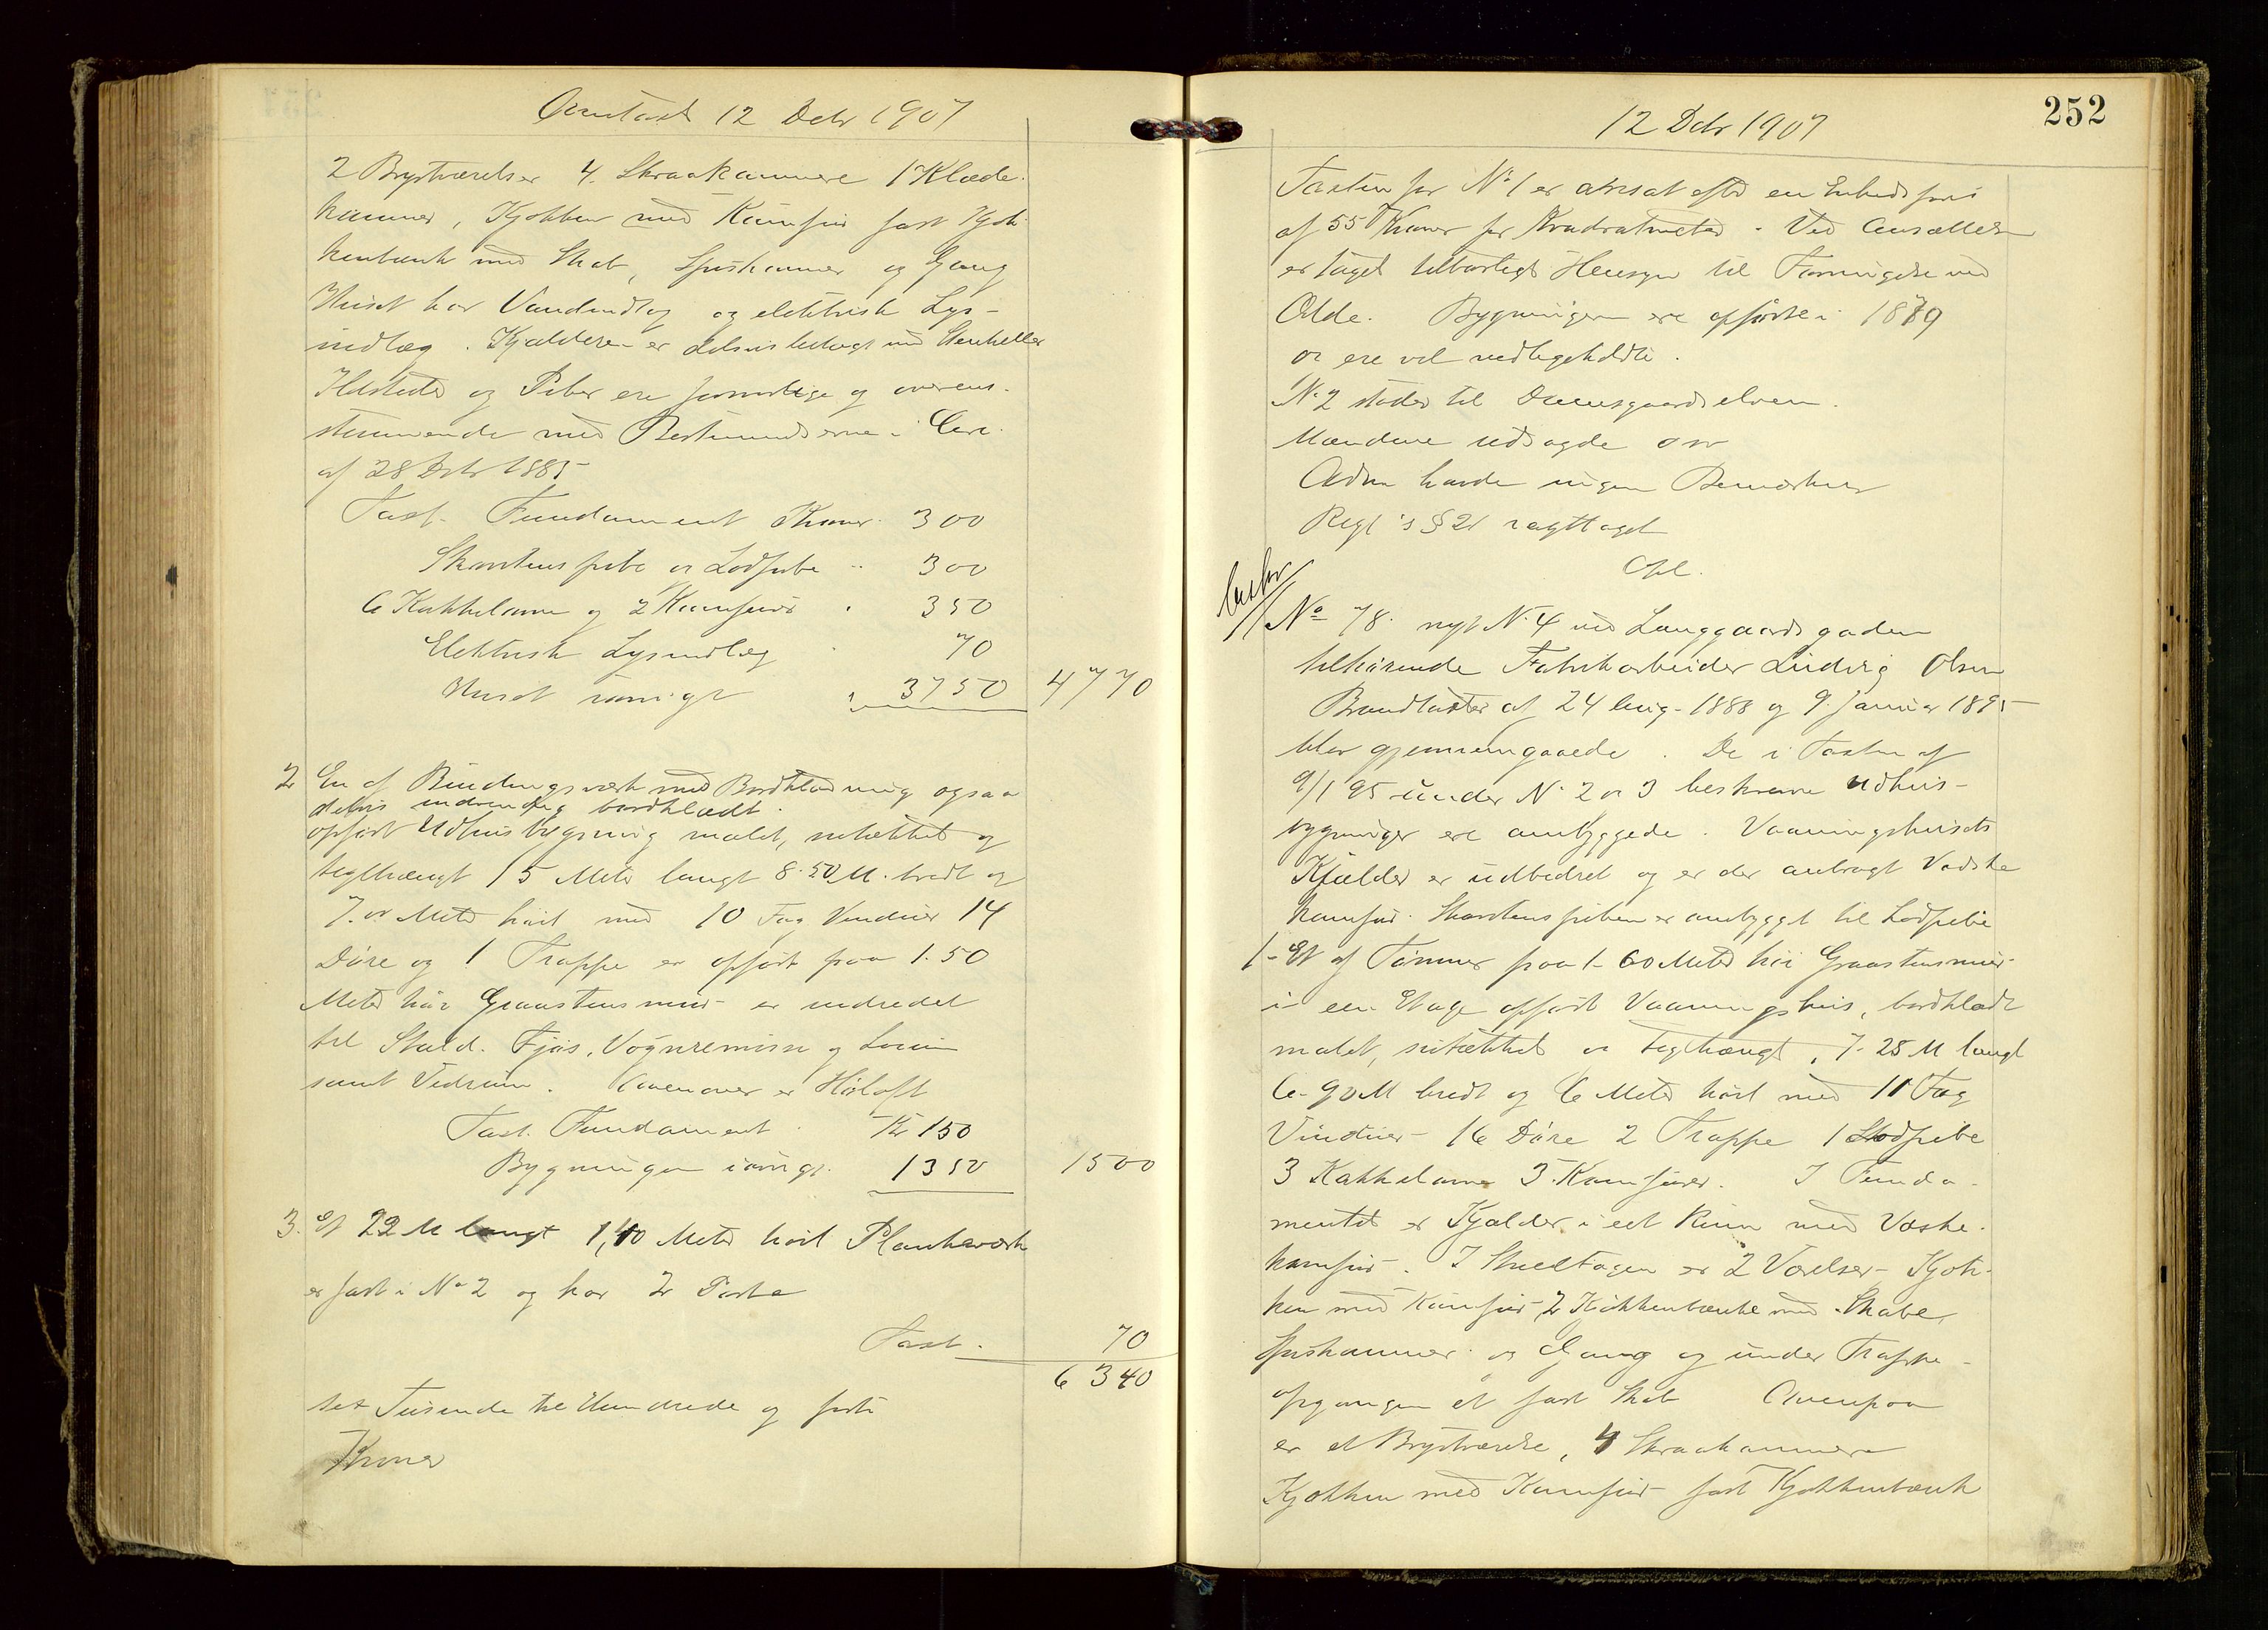 Omtaxt 12 Decbr 1907
2 Brystværelser 4 Skraakammere 1 Klæde-
kammer, Kjøkken med Kamfur fast Kjøk-
kenbænk med Skab, Spiskammer og Gang
Huset har Vandindlæg og elektrisk Lys-
indlæg. Kjælderen er delvis belagt med Stenheller
Ildsteder og Piber ere forsvarlige og overens-
stemmende med Bestemmelserne i Circ.
af 28 Decbr 1885
Taxt. Fundament Kroner 300
Skorstenspibe og Lodpibe " 300
6 Kakkelovne og 2 Kamfurer " 350
Elektrisk Lysindlæg " 70
Huset iøvrigt " 3750 4770
2 En af Bindingsværk med Bordklædning ogsaa
delvis indvendig bordklædt
opført Udhusbygning malet, sutækket og
teglhængt 15 Meter langt 8.50 M. bredt og
7.00 Meter høit med 10 Fag Vinduer 14
Døre og 1 Trappe er opført paa 1.50
Meter høi Graastensmur er indredet
til Stald. Fjøs, Vognremisse og
samt Vedrum. Ovenover er Høiloft
Taxt. Fundament Kr 150
Bygningen iøvrigt 1350 1500
3. Et 22 M langt 1,40 Meter høit Plankeværk
er fast i No 2 og har 2 Porte
Taxt. 70
6340
sex Tusende tre Hundrede og forti
Kroner
252
12 Decbr 1907
Taxten for No 1 er ansat efter en Enhedspris
af 55 Kroner pr Kvadratmeter. Ved Ansættelsen
er taget tilbørligt Hensyn til Forringelse ved
Ælde. Bygningen ere opførte i 1879
og ere vel vedligeholdte.
No 2 støder til Damsgaardselven.
Mændene udsagde osv
Adm havde ingen Bemærkning
Regl's § 21 iagttaget
No 78. nyt N. 4 ved Langgaardsgaden
tilhørende Fabrikarbeider Ludvig Olsen
Brandtaxter af 24 Aug. 1888 og 9. Januar 1895
blev gjennemgaaede. De i Taxten af
9/1 95 under No 2 og 3 beskrevne Udhus-
bygninger ere ombyggede. Vaaningshusets
Kjælder er udbedret og er der anbragt Vadske
kamfur. Skorstenspiben er ombygget til Lodpibe
1- Et af Tømmer paa 1-60 Meter høi Graastensmur
i een Etage opført Vaaningshus, bordklædt
malet, sutækket og teglhængt, 7-25 M langt
6-90 M bredt og 6 Meter høit med 11 Fag
Vinduer - 16 Døre 2 Trappe 1 Lodpibe
3 Kakkelovne 3 Kamfurer. I Funda-
mentet er Kjælder i eet Rum med Vaske-
kamfur. I Stueetagen er 2 Værelser - Kjøk-
ken med Kamfur 2 Kjøkkenbænke med Skabe,
Spiskammer og Gang og under Trappe-
opgangen et fast Skab Ovenpaa
er et Brystværelse, 4 Skraakammere
Kjøkken med Kamfur fast Kjøkkenbænk